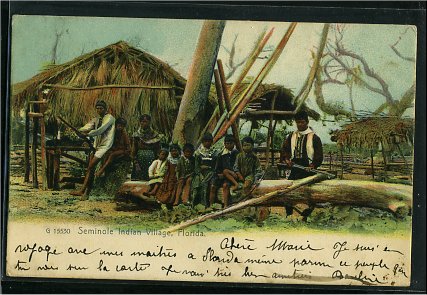 G 13530 Seminole Indian Village, Florida.
Chère Marie Je suis en
voyage avec mes maîtres à Florida même parmi ce peuple que
tu vois sur la carte Je vais très bien